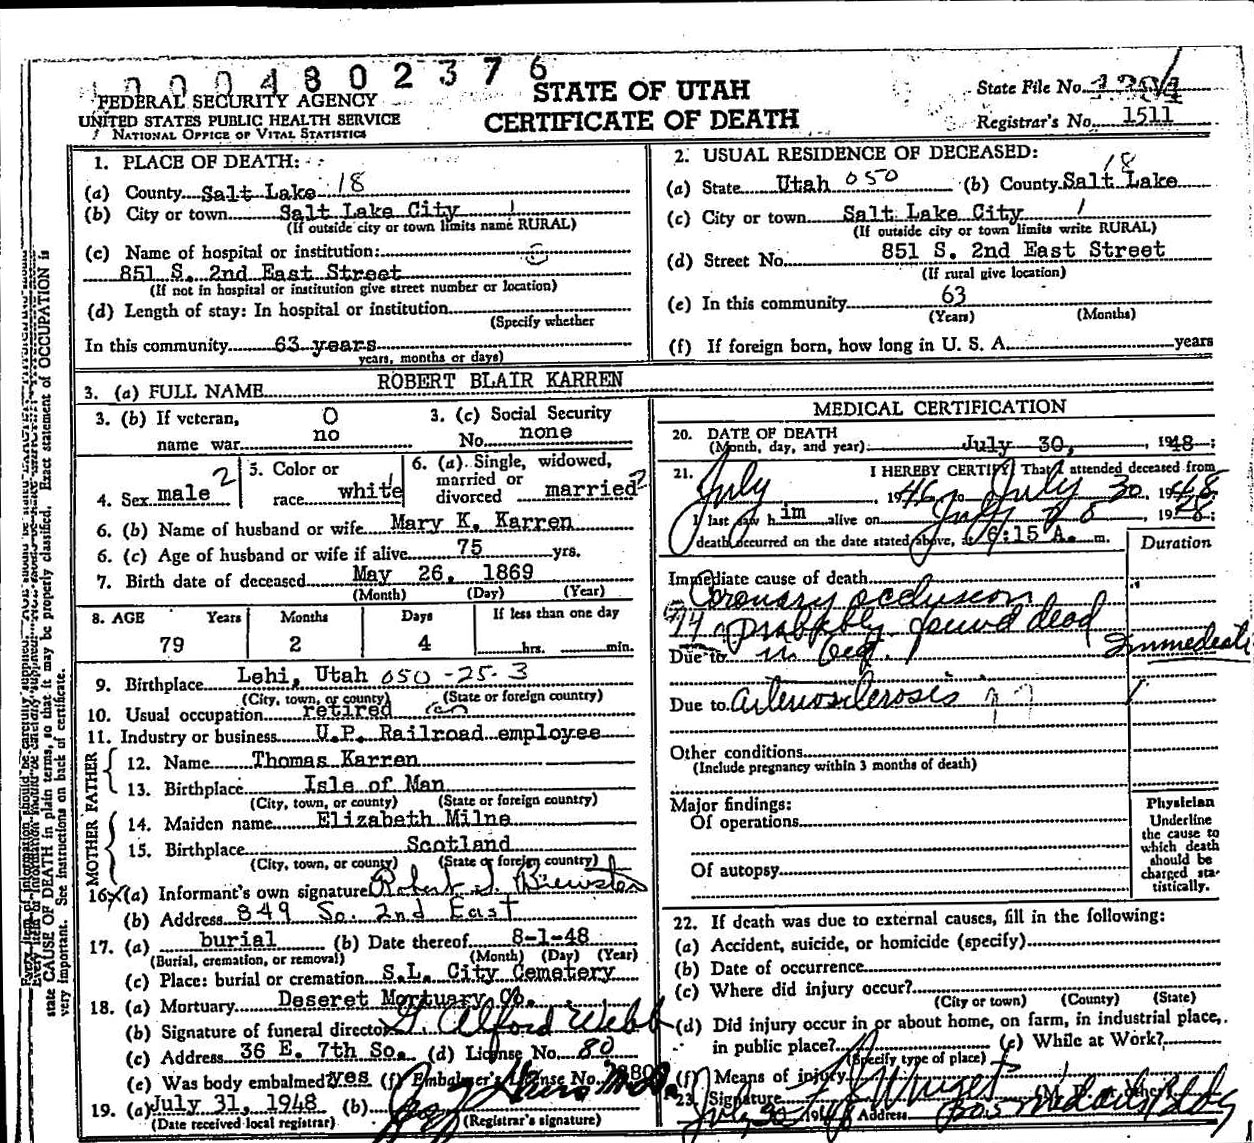 0004802376
FEDERAL SECURITY AGENCY
UNITED STATES PUBLIC HEALTH SERVICE
NATIONAL OFFICE OF VITAL STATISTICS
STATE OF UTAH
CERTIFICATE OF DEATH
State File No.
Registrar's No. 1511
1. PLACE OF DEATH:
(a) County Salt Lake 18
(b) City or town Salt Lake City 1
(If outside city or town limits name RURAL)
(c) Name of hospital or institution:
851 S. 2nd East Street
(If not in hospital or institution give street number or location)
(d) Length of stay: In hospital or institution
(Specify whether
In this community 63 years
years, months or days)
2. USUAL RESIDENCE OF DECEASED:
18
(a) State Utah 050 (b) County Salt Lake
(c) City or town Salt Lake City 1
(If outside city or town limits write RURAL)
(d) Street No. 851 S. 2nd East Street
(If rural give location)
(e) In this community 63
(Years) (Months)
(f) If foreign born, how long in U. S. A. years
3. (a) FULL NAME ROBERT BLAIR KARREN
3. (b) If veteran, 0
name war no
3. (c) Social Security
No. none
4. Sex male 2
5. Color or
race white 1
6. (a) Single, widowed,
married or
divorced married 2
6. (b) Name of husband or wife Mary K. Karren
6. (c) Age of husband or wife if alive 75 yrs.
7. Birth date of deceased May 26, 1869
(Month) (Day) (Year)
8. AGE Years Months Days If less than one day
79 2 4 hrs. min.
9. Birthplace Lehi, Utah 050-25-3
(City, town, or county) (State or foreign country)
10. Usual occupation retired
11. Industry or business U.P. Railroad employee
FATHER
12. Name Thomas Karren
13. Birthplace Isle of Man
(City, town, or county) (State or foreign country)
MOTHER
14. Maiden name Elizabeth Milne
15. Birthplace Scotland
(City, town, or county) (State or foreign country)
16. x (a) Informant's own signature Robert J. Brewster
(b) Address 849 So. 2nd East
17. (a) burial (b) Date thereof 8-1-48
(Burial, cremation, or removal) (Month) (Day) (Year)
(c) Place: burial or cremation S.L. City Cemetery
18. (a) Mortuary Deseret Mortuary Co.
(b) Signature of funeral director Alford Webb
(c) Address 36 E. 7th So. (d) License No. 80
(e) Was body embalmed? yes (f) Embalmer's License No.
19. (a) July 31, 1948 (b)
(Date received local registrar) (Registrar's signature)
MEDICAL CERTIFICATION
20. DATE OF DEATH
(Month, day, and year) July 30, 1948;
21. I HEREBY CERTIFY That I attended deceased from
July, 1946 to July 30, 1948
I last saw him alive on July 28, 1948;
death occurred on the date stated above, at 6:15 A. m.
Duration
Immediate cause of death
Coronary occlusion
94 a probably found dead
Due to in bed. Immediate
Due to arteriosclerosis
Other conditions
(Include pregnancy within 3 months of death)
Major findings:
Of operations
Of autopsy
Physician
Underline
the cause to
which death
should be
charged sta-
tistically.
22. If death was due to external causes, fill in the following:
(a) Accident, suicide, or homicide (specify)
(b) Date of occurrence
(c) Where did injury occur?
(City or town) (County) (State)
(d) Did injury occur in or about home, on farm, in industrial place,
in public place? (e) While at Work?
(Specify type of place)
(f) Means of injury
23. Signature (M. D. or other)
July 30 1948 Address
state CAUSE OF DEATH in plain terms, so that it may be properly classified. Exact statement of OCCUPATION is
very important. See instructions on back of certificate.